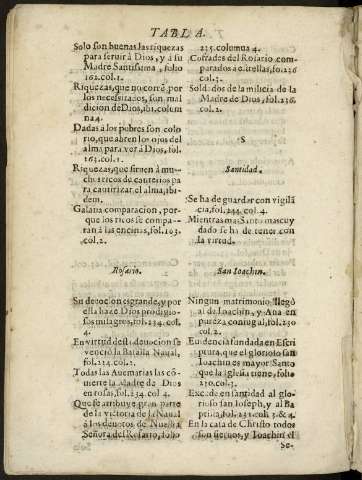 TABLA.
Solo son buenas las riquezas
para seruir à Dios, y à su
Madre Santissima, folio
162. col. 1.
Riquezas, que no corrē por
los necessitados, son mal
dicion de Dios, ibi. colum
na 4.
Dadas a los pobres son colo
rio, que abren los ojos del
alma para ver à Dios, fol.
163. col. 1.
Riquezas, que siruen à mu-
chos ricos de cauterios pa
ra cauterizar el alma, ibi-
dem.
Galana comparacion, por-
que los ricos se compa-
ran à las encinas, fol. 163.
col. 2.
Rosario.
Su deuocion es grande, y por
ella haze Dios prodigio-
sos milagros, fol. 234. col.
4.
En virtud desta deuocion se
venciò la Batalla Naual,
fol. 234. col. 2.
Todas las Auemarias las cō-
uierte la Madre de Dios
en rosas, fol. 234. col. 4.
Que se atribuye gran parte
de la victoria de la Naual
à los deuotos de Nuestra
Señora del Rosario, folio
235. columna 4.
Cofrades del Rosario com-
parados à estrellas, fo. 236
col. 3.
Soldados de la milicia de la
Madre de Dios, fol. 236.
col. 2.
S
Santidad.
Se ha de guardar con vigilā
cia, fol. 244. col. 4.
Mientras mas Santo mas cuy
dado se ha de tener con
la virtud.
San Ioachin.
Ningun matrimonio llegò
al de Ioachin, y Ana en
pureza coniugal, fol. 230
col. 2.
Euidencia fundada en Escri
ptura, que el glorioso san
Ioachin es mayor Santo
que la Iglesia tiene, folio
230. col. 3.
Excede en santidad al glo-
rioso san Ioseph, y al Ba
ptista, fol. 231. col. 3. & 4.
En la casa de Christo todos
son sieruos, y Ioachin el
Se-